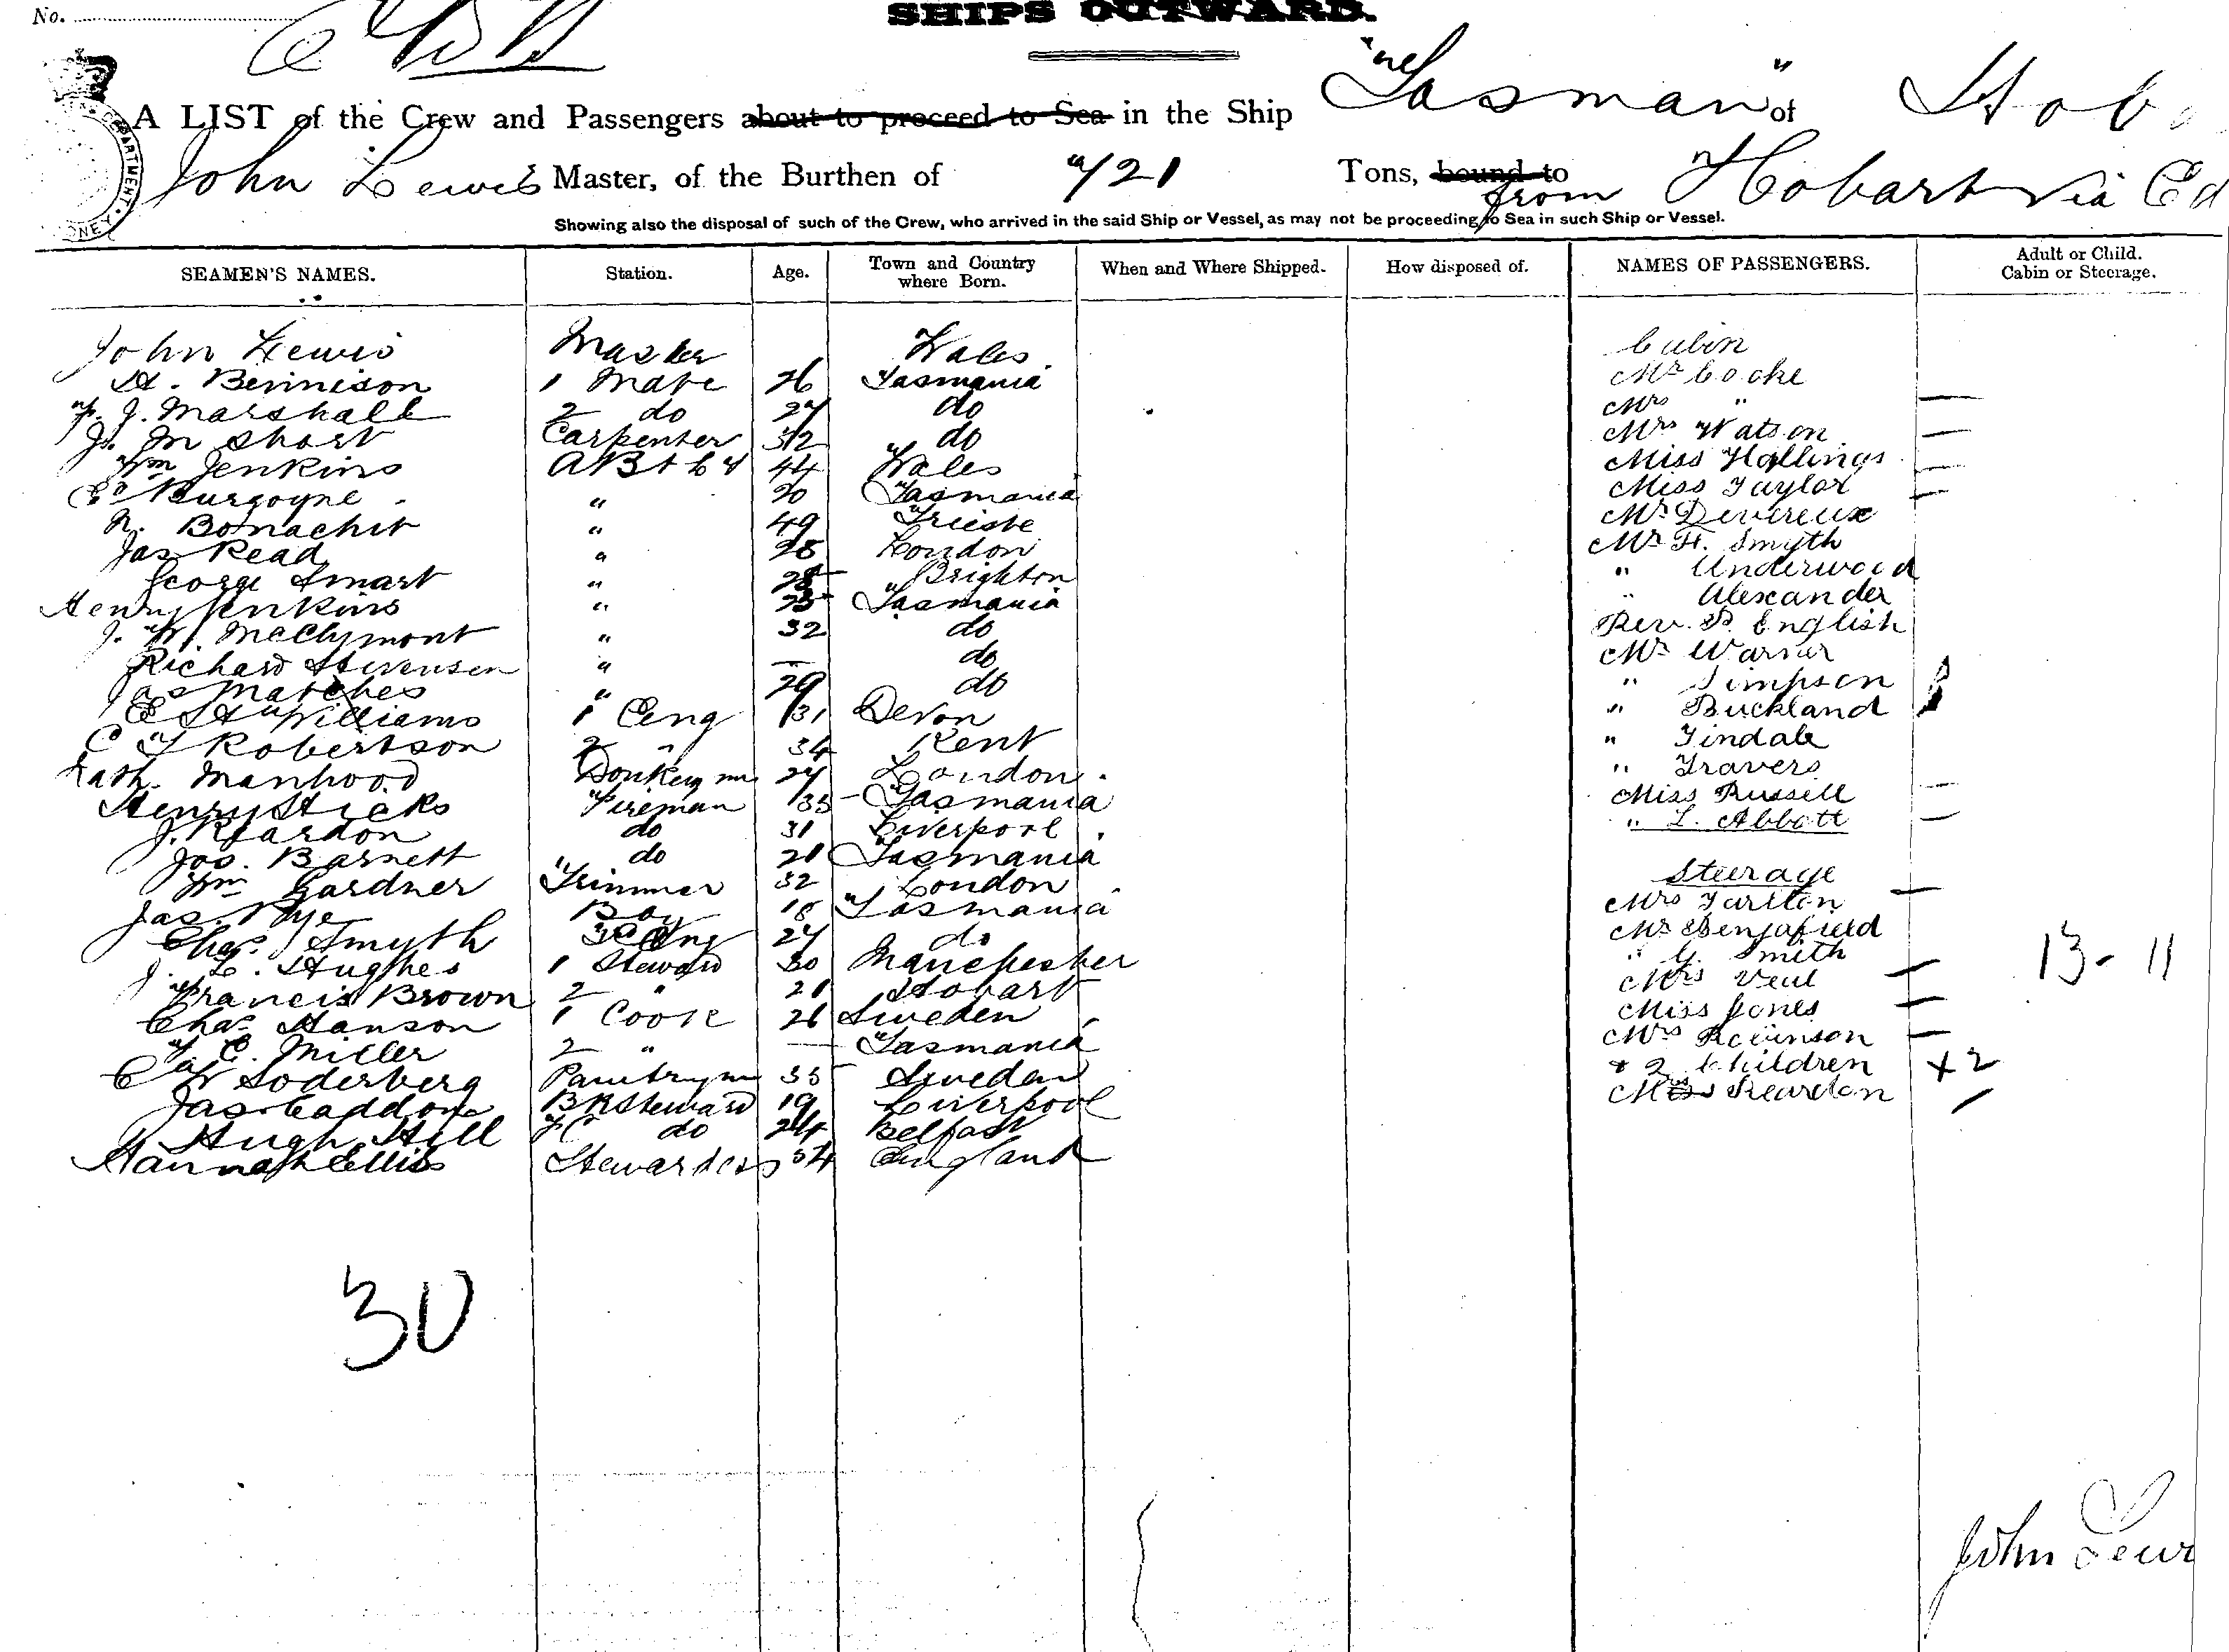 No.
SHIPS OUTWARD.
A LIST of the Crew and Passengers about to proceed to Sea in the Ship "Tasman" of Hob
John Lewis Master, of the Burthen of Tons, bound to from Hobart via Ed
Showing also the disposal of such of the Crew, who arrived in the said Ship or Vessel, as may not be proceeding to Sea in such Ship or Vessel.
SEAMEN'S NAMES. Station. Age. Town and Country where Born. When and Where Shipped. How disposed of. NAMES OF PASSENGERS. Adult or Child. Cabin or Steerage.
John Lewis Master Wales Cabin
H. Bennison 1 Mate 26 Tasmania Mr Cocke
J. Marshall 2 do 27 do Mrs "
M Short Carpenter 32 do Mrs Watson
Wm Jenkins AB 44 Wales Miss Hollings
Burgoyne " 20 Tasmania Miss Taylor
Bonachit " 49 Trieste Mr Devereux
Jas Read " 28 London Mr H. Smyth
George Smart " 28 Brighton " Underwood
Henry Jenkins " 25 Tasmania " Alexander
J. W. McClymont " 32 do Rev. P. English
Richard Stevensen " — do Mr Warner
Jas Matches " 29 do " Simpson
E H Williams 1 Eng 31 Devon " Buckland
C T Robertson 2 " 34 Kent " Tindale
Manhood Donkeymn 27 London " Travers
Henry Hicks Fireman 35 Tasmania Miss Russell
J. Reardon do 31 Liverpool " L. Abbott
Jos. Barnett do 21 Tasmania
Wm Gardner Trimmer 32 London Steerage
Jas. Pye Boy 18 Tasmania Mrs Tarlton
Chas. Smyth 3rd Eng 27 do Mr Benjafield
J. L. Hughes 1 Steward 30 Manchester " G. Smith
Francis Brown 2 " 21 Hobart Mrs Veal 13-11
Chas. Hanson 1 Cook 26 Sweden Miss Jones
C. Miller 2 " — Tasmania Mrs Robinson
C W Soderberg Pantrymn 35 Sweden + 2 Children + 2
Jas. Caddon BR Steward 19 Liverpool Reardon
Hugh Hill FC do 24 Belfast
Hannah Ellis Stewardess 34 England
30
John Lewi